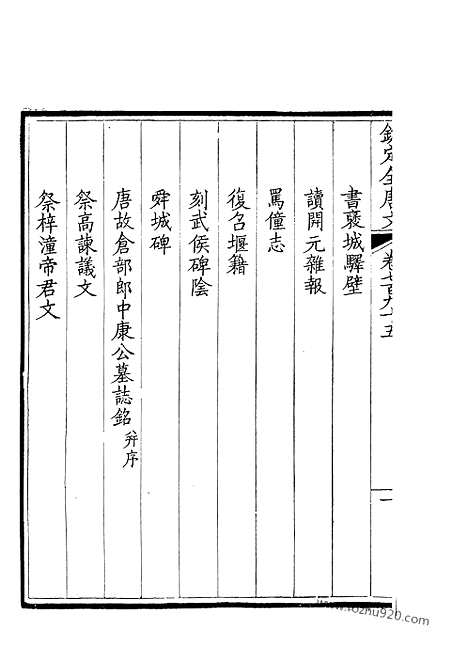 欽定全唐文
卷七百九十五
一
書褒城驛壁
讀開元雜報
罵僮志
復召堰籍
刻武侯碑陰
舜城碑
唐故倉部郎中康公墓誌銘 幷序
祭高諫議文
祭梓潼帝君文
www.fozhu920.com